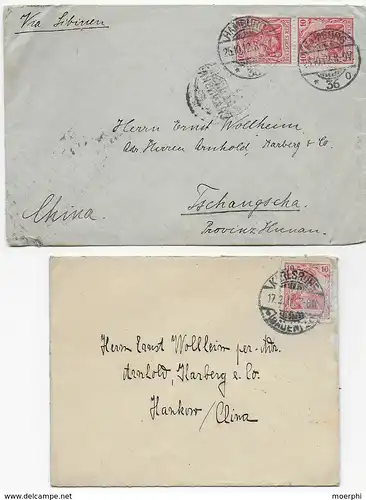 Via Sibirien
HAMBURG
36
HAMBURG
* 36 o
Herrn Ernst Wollheim
Adr. Herren Arnhold, Karberg & Co.
China.
Tschangscha.
Provinz Hunan.
KARLSRUHE
17.
(BADEN)
Herrn Ernst Wollheim per Adr.
Arnhold, Karberg & Co.
Hankow/China
www.delcampe.net
moerphi